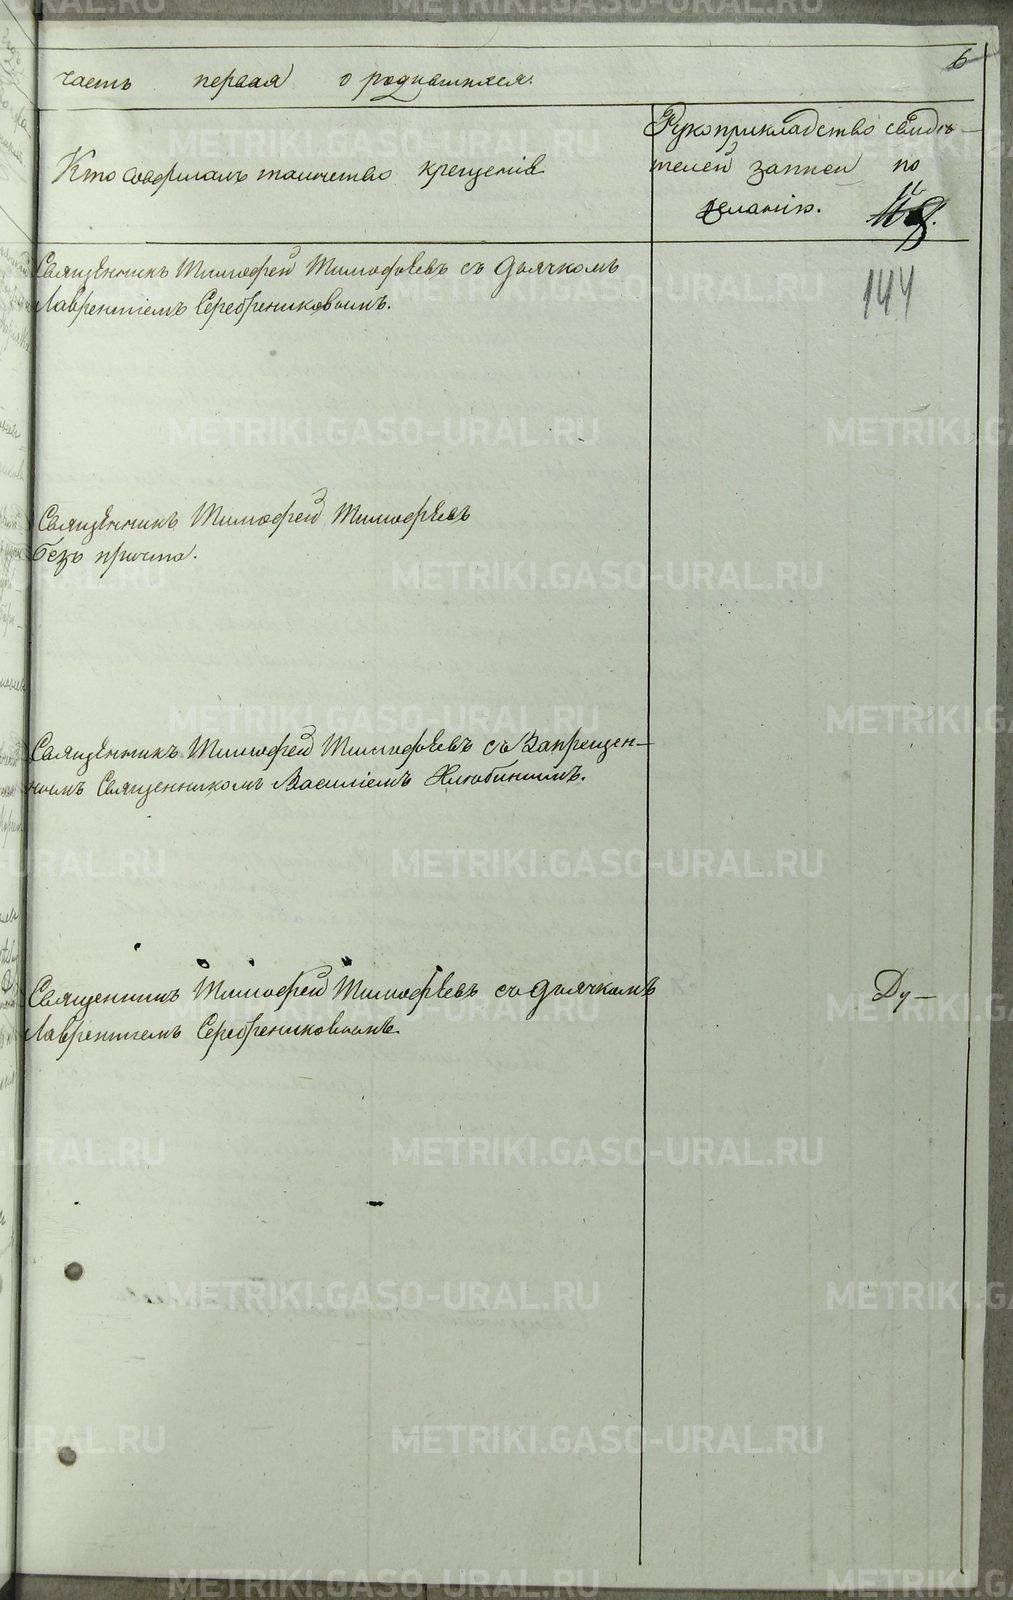 6
часть первая о родившихся.
Кто совершалъ таинство крещенія
Рукоприкладство свидѣ-
телей записи по
желанію.
144
Священникъ Тимофей Тимофѣевъ съ дьячкомъ
Лаврентіемъ Серебрениковымъ.
Священникъ Тимофей Тимофѣевъ
безъ причта.
Священникъ Тимофей Тимофѣевъ съ Запрещен-
нымъ Священникомъ Василіемъ Нлюбинымъ.
Священникъ Тимофей Тимофѣевъ съ дьячкомъ
Лаврентіемъ Серебрениковымъ.
Ду-
METRIKI.GASO-URAL.RU